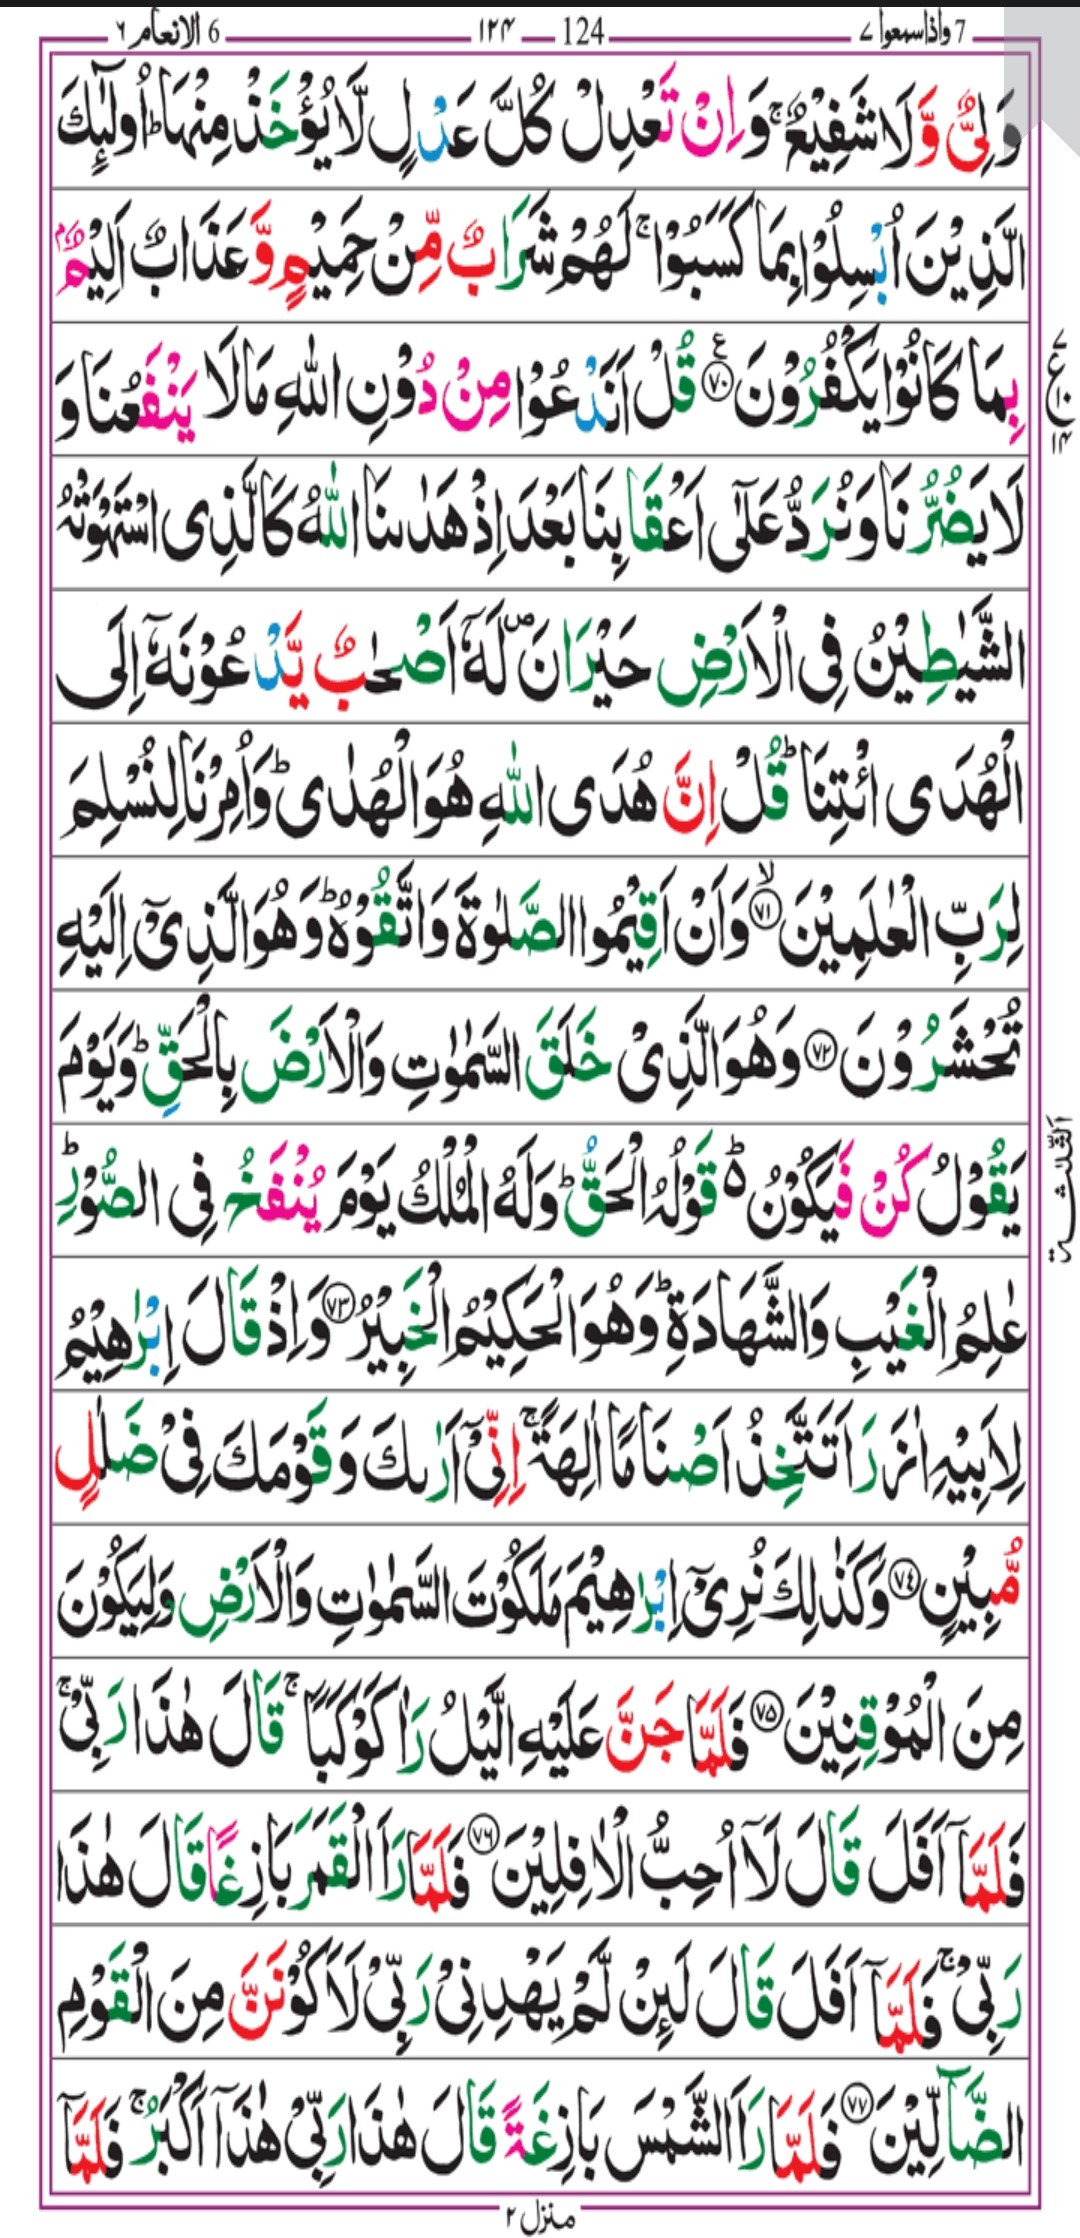 7 واذاسمعوا ٧ 124 ١٢۴ 6 الانعام ٦
وَلِىٌّ وَّلَا شَفِيْعٌ ۚ وَاِنْ تَعْدِلْ كُلَّ عَدْلٍ لَّا يُؤْخَذْ مِنْهَا ؕ اُولٰٓئِكَ
الَّذِيْنَ اُبْسِلُوْا بِمَا كَسَبُوْا ۚ لَهُمْ شَرَابٌ مِّنْ حَمِيْمٍ وَّعَذَابٌ اَلِيْمٌۢ
بِمَا كَانُوْا يَكْفُرُوْنَ ﴿٧٠﴾ ع قُلْ اَنَدْعُوْا مِنْ دُوْنِ اللّٰهِ مَا لَا يَنْفَعُنَا وَ
٧ ع ١٠ ١۴
لَا يَضُرُّنَا وَنُرَدُّ عَلٰٓى اَعْقَابِنَا بَعْدَ اِذْ هَدٰٮنَا اللّٰهُ كَالَّذِى اسْتَهْوَتْهُ
الشَّيٰطِيْنُ فِى الْاَرْضِ حَيْرَانَ ۖ لَهٗۤ اَصْحٰبٌ يَّدْعُوْنَهٗۤ اِلَى
الْهُدَى ائْتِنَا ؕ قُلْ اِنَّ هُدَى اللّٰهِ هُوَ الْهُدٰى ؕ وَاُمِرْنَا لِنُسْلِمَ
لِرَبِّ الْعٰلَمِيْنَ ۙ﴿٧١﴾ وَاَنْ اَقِيْمُوا الصَّلٰوةَ وَاتَّقُوْهُ ؕ وَهُوَ الَّذِىْۤ اِلَيْهِ
تُحْشَرُوْنَ ﴿٧٢﴾ وَهُوَ الَّذِىْ خَلَقَ السَّمٰوٰتِ وَالْاَرْضَ بِالْحَقِّ ؕ وَيَوْمَ
يَقُوْلُ كُنْ فَيَكُوْنُ ۬ؕ قَوْلُهُ الْحَقُّ ؕ وَلَهُ الْمُلْكُ يَوْمَ يُنْفَخُ فِى الصُّوْرِ ؕ
الثلثة
عٰلِمُ الْغَيْبِ وَالشَّهَادَةِ ؕ وَهُوَ الْحَكِيْمُ الْخَبِيْرُ ﴿٧٣﴾ وَاِذْ قَالَ اِبْرٰهِيْمُ
لِاَبِيْهِ اٰزَرَ اَتَتَّخِذُ اَصْنَامًا اٰلِهَةً ۚ اِنِّىْۤ اَرٰٮكَ وَقَوْمَكَ فِىْ ضَلٰلٍ
مُّبِيْنٍ ﴿٧٤﴾ وَكَذٰلِكَ نُرِىْۤ اِبْرٰهِيْمَ مَلَكُوْتَ السَّمٰوٰتِ وَالْاَرْضِ وَلِيَكُوْنَ
مِنَ الْمُوْقِنِيْنَ ﴿٧٥﴾ فَلَمَّا جَنَّ عَلَيْهِ الَّيْلُ رَاٰ كَوْكَبًا ۚ قَالَ هٰذَا رَبِّىْ ۚ
فَلَمَّاۤ اَفَلَ قَالَ لَاۤ اُحِبُّ الْاٰفِلِيْنَ ﴿٧٦﴾ فَلَمَّا رَاَ الْقَمَرَ بَازِغًا قَالَ هٰذَا
رَبِّىْ ۚ فَلَمَّاۤ اَفَلَ قَالَ لَئِنْ لَّمْ يَهْدِنِىْ رَبِّىْ لَاَكُوْنَنَّ مِنَ الْقَوْمِ
الضَّآلِّيْنَ ﴿٧٧﴾ فَلَمَّا رَاَ الشَّمْسَ بَازِغَةً قَالَ هٰذَا رَبِّىْ هٰذَاۤ اَكْبَرُ ۚ فَلَمَّاۤ
منزل ٢